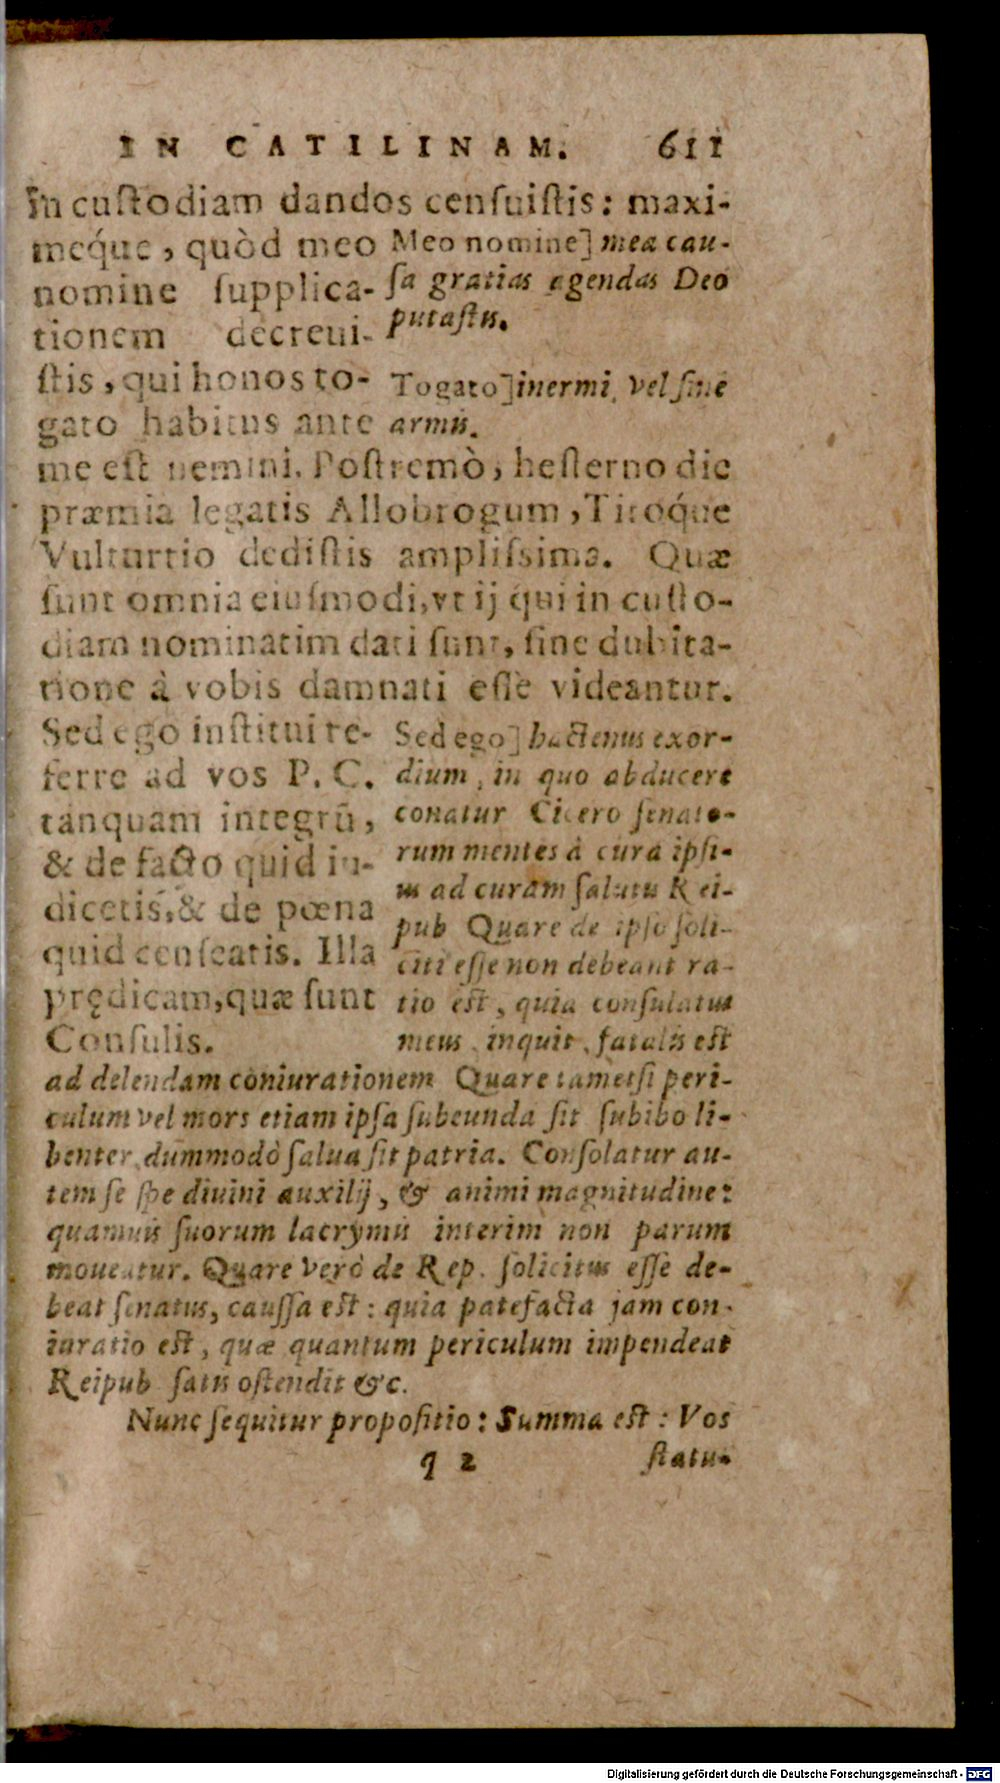 IN CATILINAM. 611
in cuſtodiam dandos cenſuiſtis: maxi-
meq́ue, quòd meo
nomine ſupplica-
tionem decreui-
ſtis, qui honos to-
gato habitus ante
Meo nomine] mea cau-
ſa gratias agendas Deo
putaſtis.
Togato] inermi, vel ſine
armis.
me eſt nemini. Poſtremò, heſterno die
præmia legatis Allobrogum, Titoq́ue
Vulturtio dediſtis ampliſsima. Quæ
ſunt omnia eiuſmodi, vt ij qui in cuſto-
diam nominatim dati ſunt, ſine dubita-
tione à vobis damnati eſſe videantur.
Sed ego inſtitui re-
ferre ad vos P. C.
tanquam integrũ,
& de facto quid iu-
dicetis, & de pœna
quid cenſeatis. Illa
prędicam, quæ ſunt
Conſulis.
Sed ego] hactenus exor-
dium, in quo abducere
conatur Cicero ſenato-
rum mentes à cura ipſi-
us ad curam ſalutis Rei-
pub Quare de ipſo ſoli-
citi eſſe non debeant ra-
tio eſt, quia conſulatus
meus, inquit, fatalis eſt
ad delendam coniurationem Quare tametſi peri-
culum vel mors etiam ipſa ſubeunda ſit ſubibo li-
benter, dummodò ſalua ſit patria. Conſolatur au-
tem ſe ſpe diuini auxilij, & animi magnitudine:
quamuis ſuorum lacrymis interim non parum
moueatur. Quare verò de Rep. ſolicitus eſſe de-
beat ſenatus, cauſſa eſt: quia patefacta jam con-
iuratio eſt, quæ quantum periculum impendeat
Reipub ſatis oſtendit &c.
Nunc ſequitur propoſitio: Summa eſt: Vos
q 2 ſtatu-
Digitalisierung gefördert durch die Deutsche Forschungsgemeinschaft - DFG